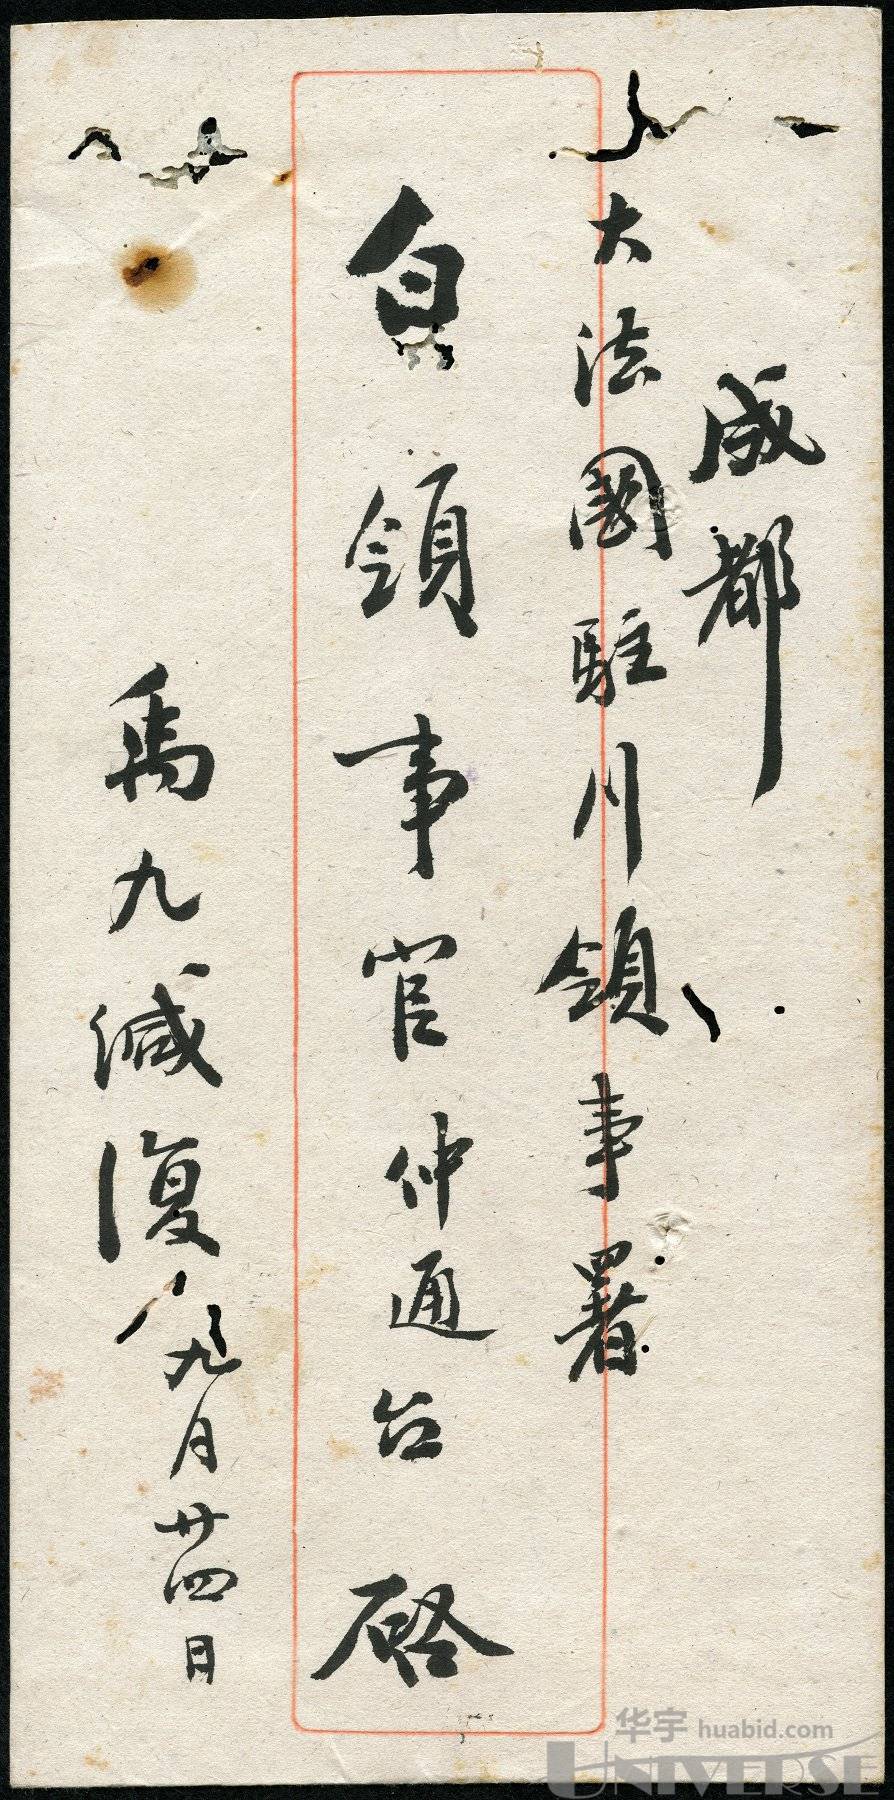 成都
大法國駐川領事署
白領事官仲通台啓
禹九緘復
九月廿四日
华宇 huabid.com
UNIVERSE